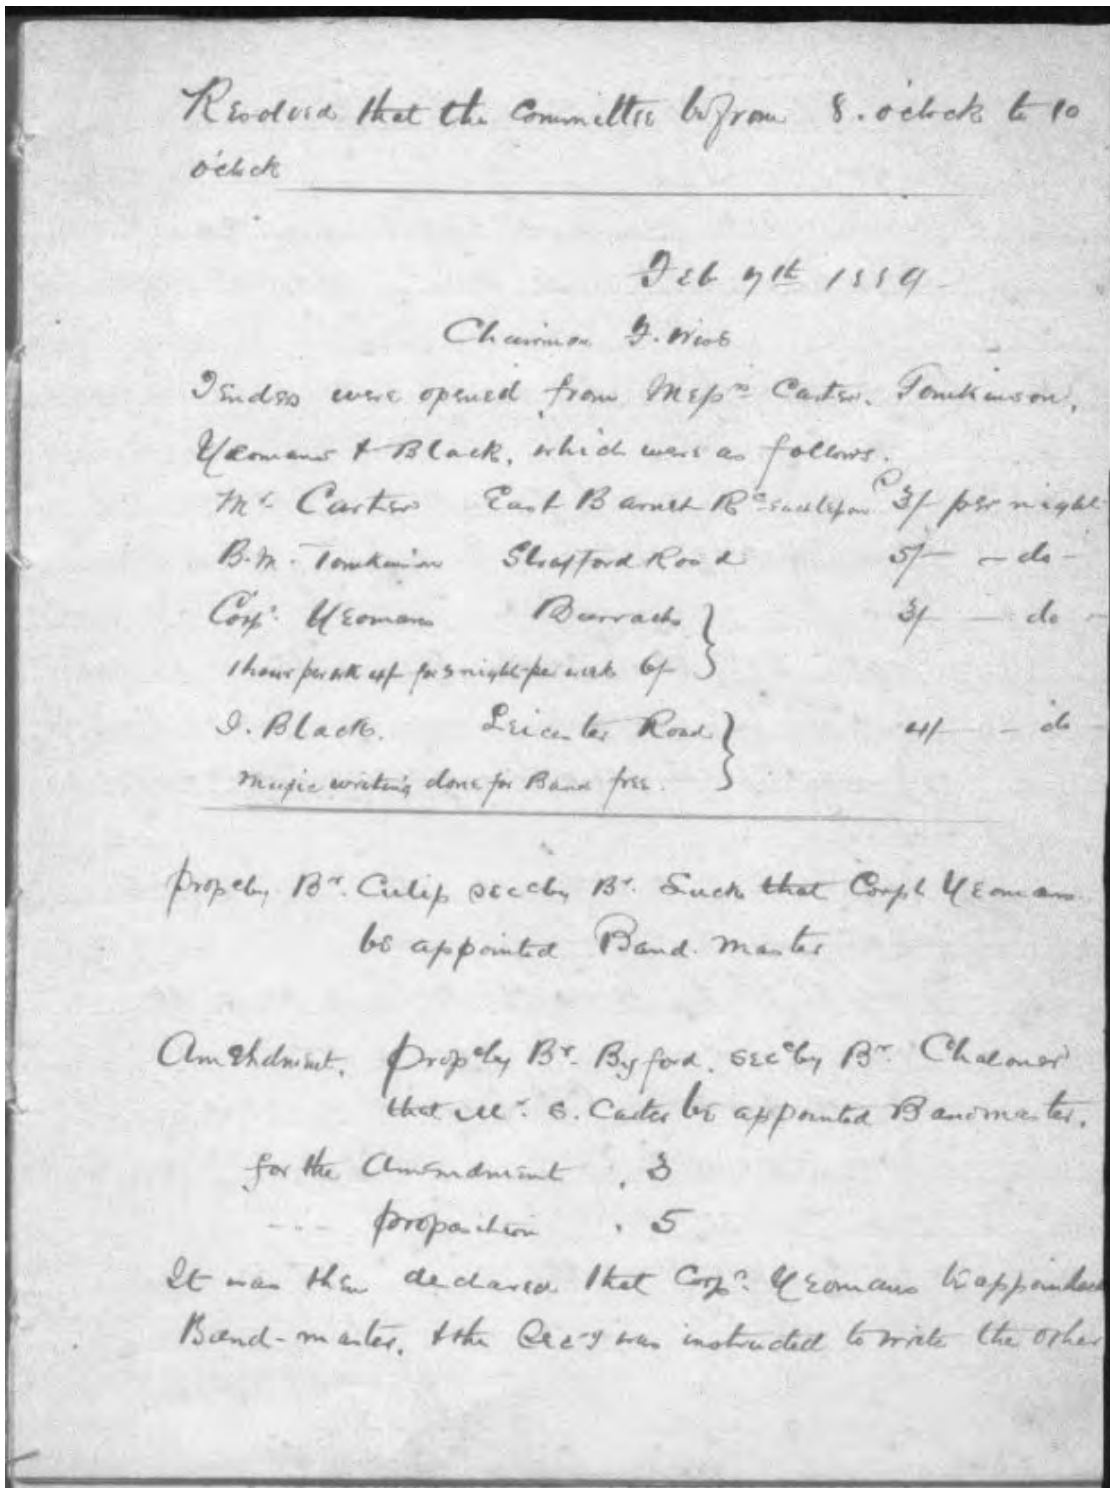 Resolved that the Committee be from 8. o'clock to 10
o'clock
Feb 7th 1889
Chairman F.
Tenders were opened from Messrs Carter. Tomkinson.
Yeomans & Black, which were as follows.
Mr Carter East Barnet Rd 3/- per night
B.M. Tomkinson Strafford Road 5/- - do -
Corpl. Yeomans Barracks 3/- - do -
1 hour per wk 4/- for 3 night per week 6/-
J. Black. Leicester Road 4/- - do -
Music writing done for Band free.
propd by Br. Culip secd by Br. Suck that Corpl Yeomans
be appointed Band. master
Amendment. propd by Br. Byford. secd by Br. Chaloner
that Mr. S. Carter be appointed Bandmaster.
for the Amendment . 3
proposition . 5
It was then declared that Corpl. Yeomans be appointed
Band-master, & the Secy was instructed to write the other